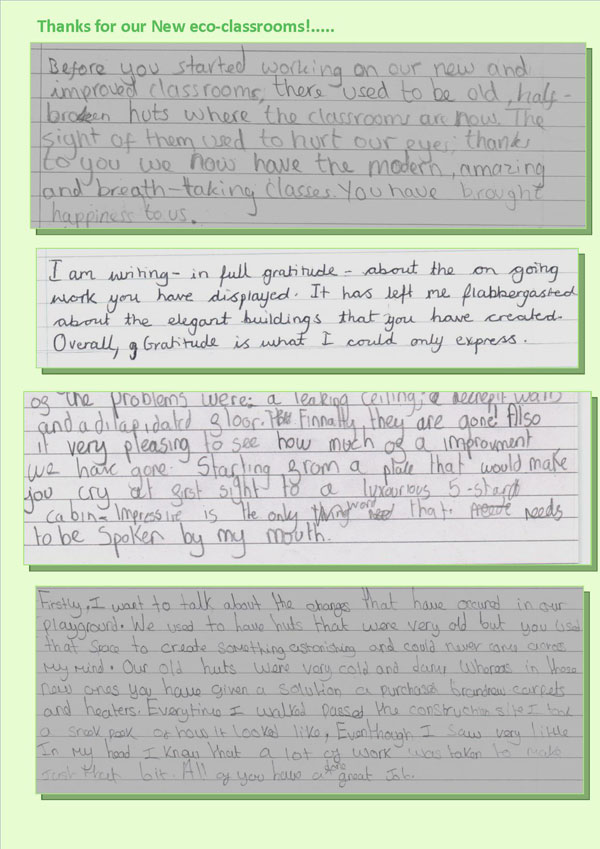 Thanks for our New eco-classrooms!.....
Before you started working on our new and
improved classrooms, there used to be old, half-
broken huts where the classrooms are now. The
sight of them used to hurt our eyes; thanks
to you we now have the modern, amazing
and breath-taking classes. You have brought
happiness to us.
I am writing - in full gratitude - about the on going
work you have displayed. It has left me flabbergasted
about the elegant buildings that you have created.
Overall, Gratitude is what I could only express.
of the problems were: a leaking ceiling; decrepit walls
and a dilapidated floor. Finnally, they are gone! Also
it very pleasing to see how much of a improvment
we have gone. Starting from a place that would make
you cry at first sight to a luxurious 5-start
cabin- Impressive is the only word that needs
to be Spoken by my mouth.
Firstly, I want to talk about the changes that have occured in our
playground. We used to have huts that were very old but you used
that space to create something astonishing and could never come across
My mind. Our old huts were very cold and damp Whereas in these
new ones you have given a solution a purchased brandnew carpets
and heaters. Everytime I walked passed the construction site I took
a sneak peek of how it looked like, Eventhough I saw very little
In my head I knew that a lot of work was taken to make
just that bit. All of you have done a great Job.